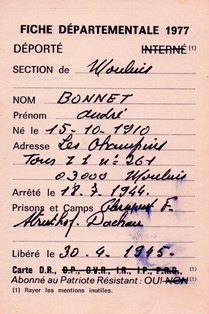 FICHE DÉPARTEMENTALE 1977
DÉPORTÉ INTERNÉ (1)
SECTION de Moulins
NOM BONNET
Prénom andré
Né le 15-10-1910
Adresse Les Champins
Tour Z 1 n° 261
03000 Moulins
Arrêté le 18.7.1944.
Prisons et Camps
Struthof. Dachau
Libéré le 30.4.1945.
Carte D.R., D.P., C.V.R., I.R., I.P., P.R.O., (1)
Abonné au Patriote Résistant : OUI NON (1)
(1) Rayer les mentions inutiles.